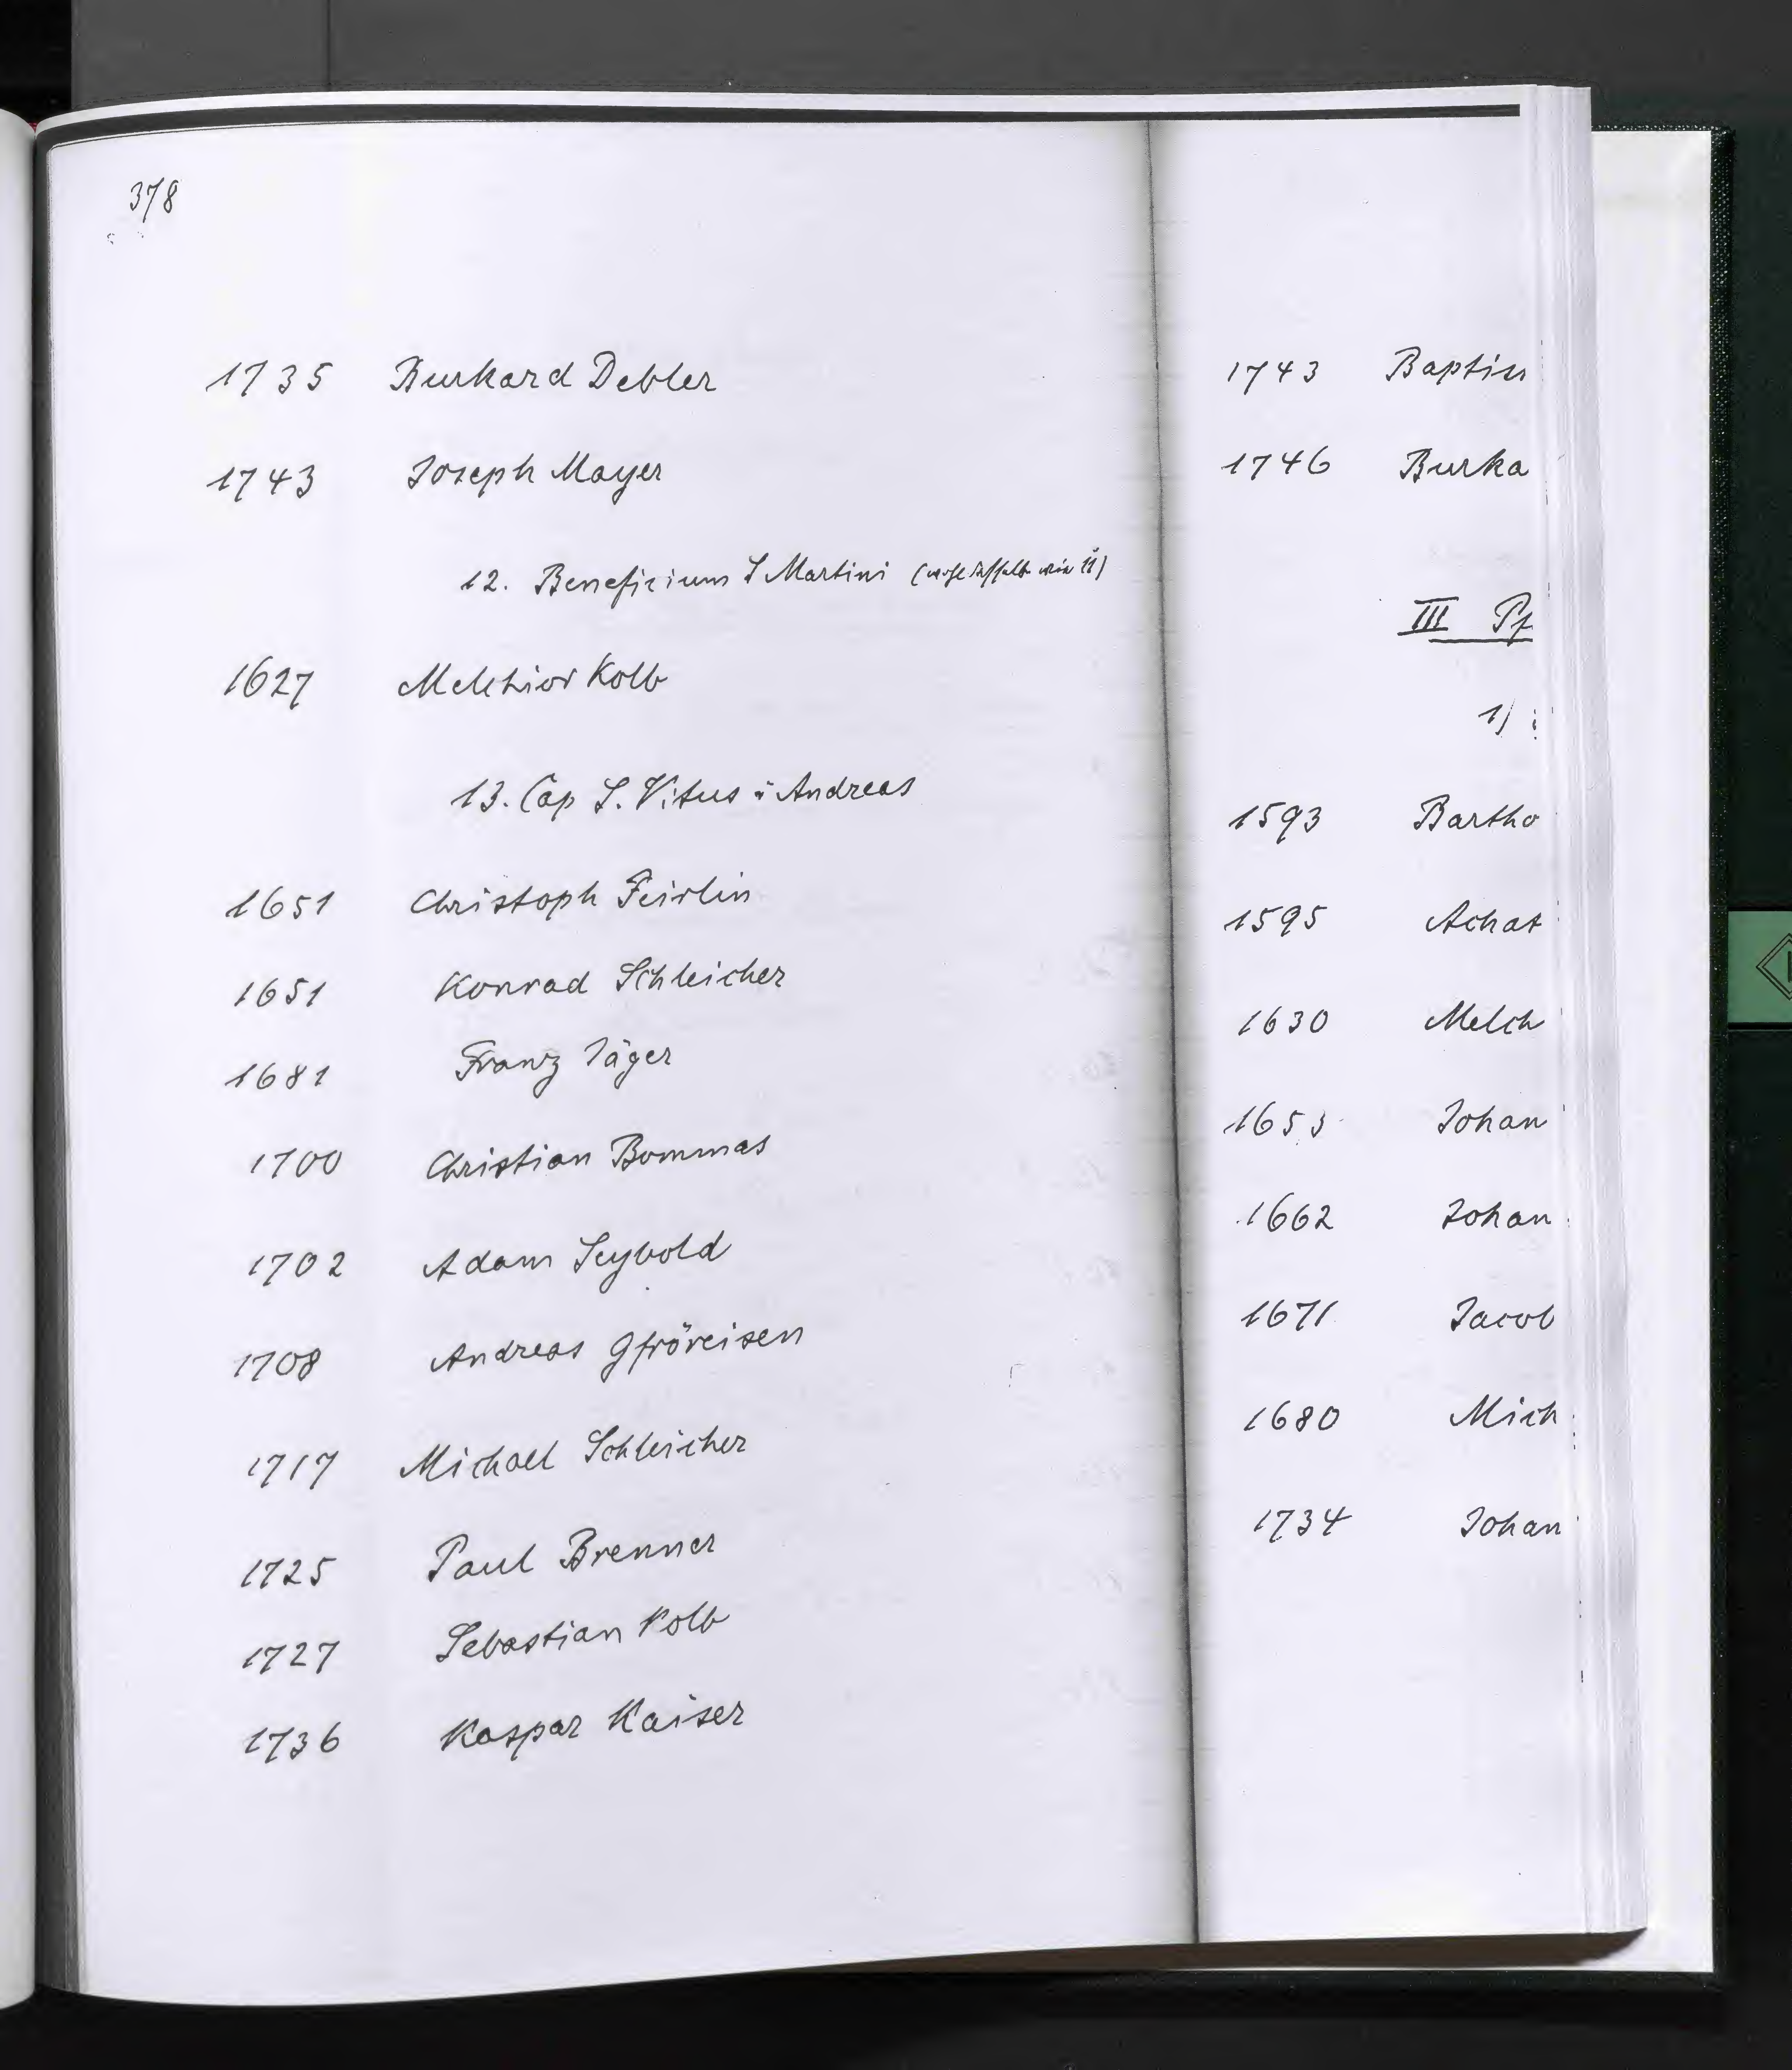 378
1735 Burkard Debler
1743 Joseph Mayer
12. Benefizium S Martini (wohl dasselbe wie 11)
1627 Melchior Kolb
13. Cap S. Vitus u Andreas
1651 Christoph Feirlin
1651 Konrad Schleicher
1681 Franz Jäger
1700 Christian Bommas
1702 Adam Seybold
1708 Andreas Gfröreisen
1717 Michael Schleicher
1725 Paul Brenner
1727 Sebastian Kolb
1736 Kaspar Kaiser
1743 Baptis
1746 Burka
III Pf
1)
1593 Bartho
1595 Achat
1630 Melch
1653 Johan
1662 Johan
1671 Jacob
1680 Mich
1734 Johan